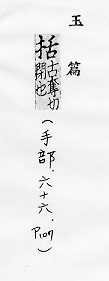 玉篇
括古奪切
閉也
（手部．六十六．P101）